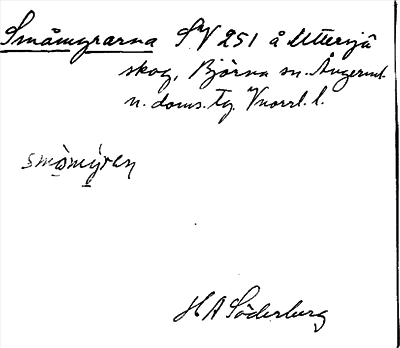 Småmyrarna SmV 251 å Uttersjö
skog, Björna sn. Ångerml.
n. doms. tg. Vnorrl. l.
småmyren
H A Söderberg